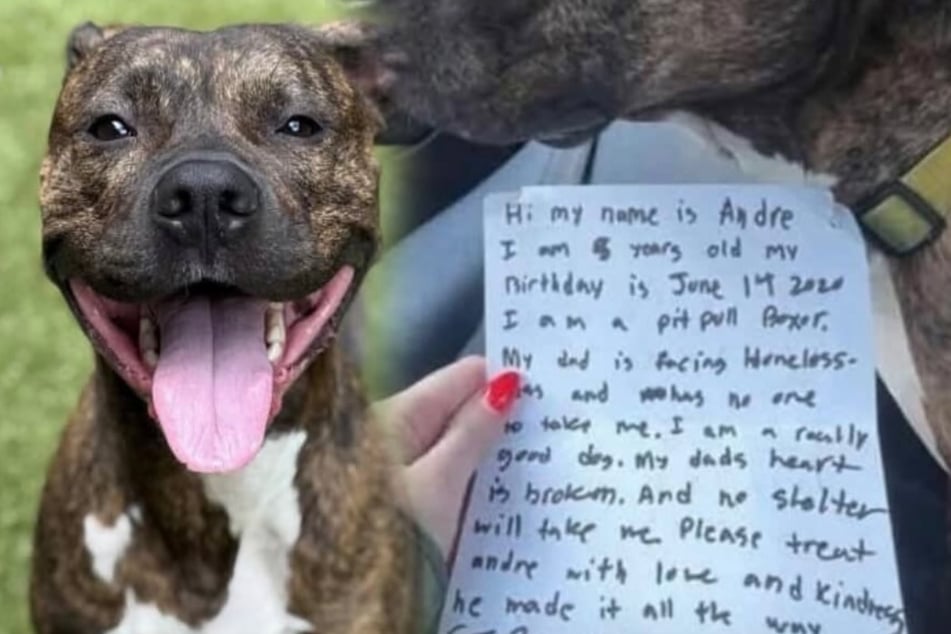 Hi my name is Andre
I am 5 years old my
Birthday is June 14 2020
I am a pit pull Boxer.
My dad is facing Homeless-
and has no one
to take me. I am a really
good dog. My dads heart
is broken. And no shelter
will take me Please treat
andre with love and kindness
he made it all the way